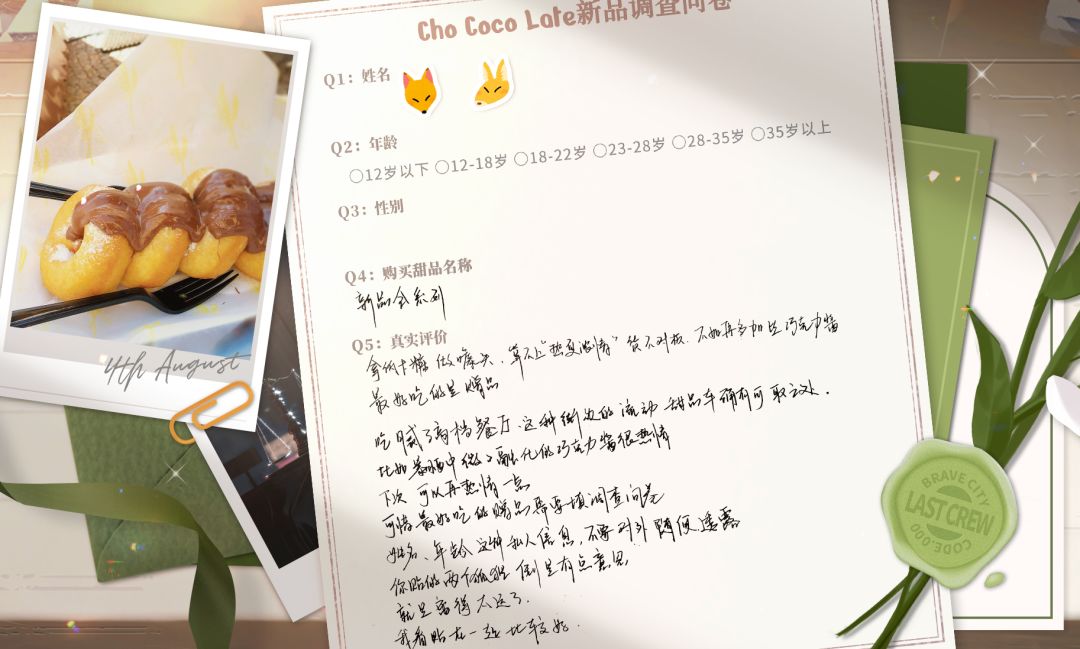 Cho Coco Late新品调查问卷
Q1：姓名
Q2：年龄
○12岁以下 ○12-18岁 ○18-22岁 ○23-28岁 ○28-35岁 ○35岁以上
Q3：性别
Q4：购买甜品名称
新品全系列
Q5：真实评价
拿低卡糖做噱头、算不上“热夏浓情”货不对板、不如再多加些巧克力酱
最好吃的是赠品
吃腻了高档餐厅、这种街边的流动甜品车确有可取之处.
比如暴晒中微微融化的巧克力酱很热情
下次可以再热情一点
可惜最好吃的赠品需要填调查问卷
姓名、年龄这种私人信息，不要对外随便透露
你贴的两个狐狸倒是有点意思
就是离得太远了
我看贴在一起比较好.
4th August
BRAVE CITY
LAST CREW
CODE:000